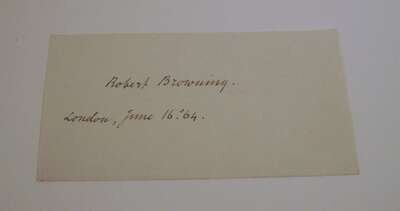 Robert Browning.
London, June 16. '64.